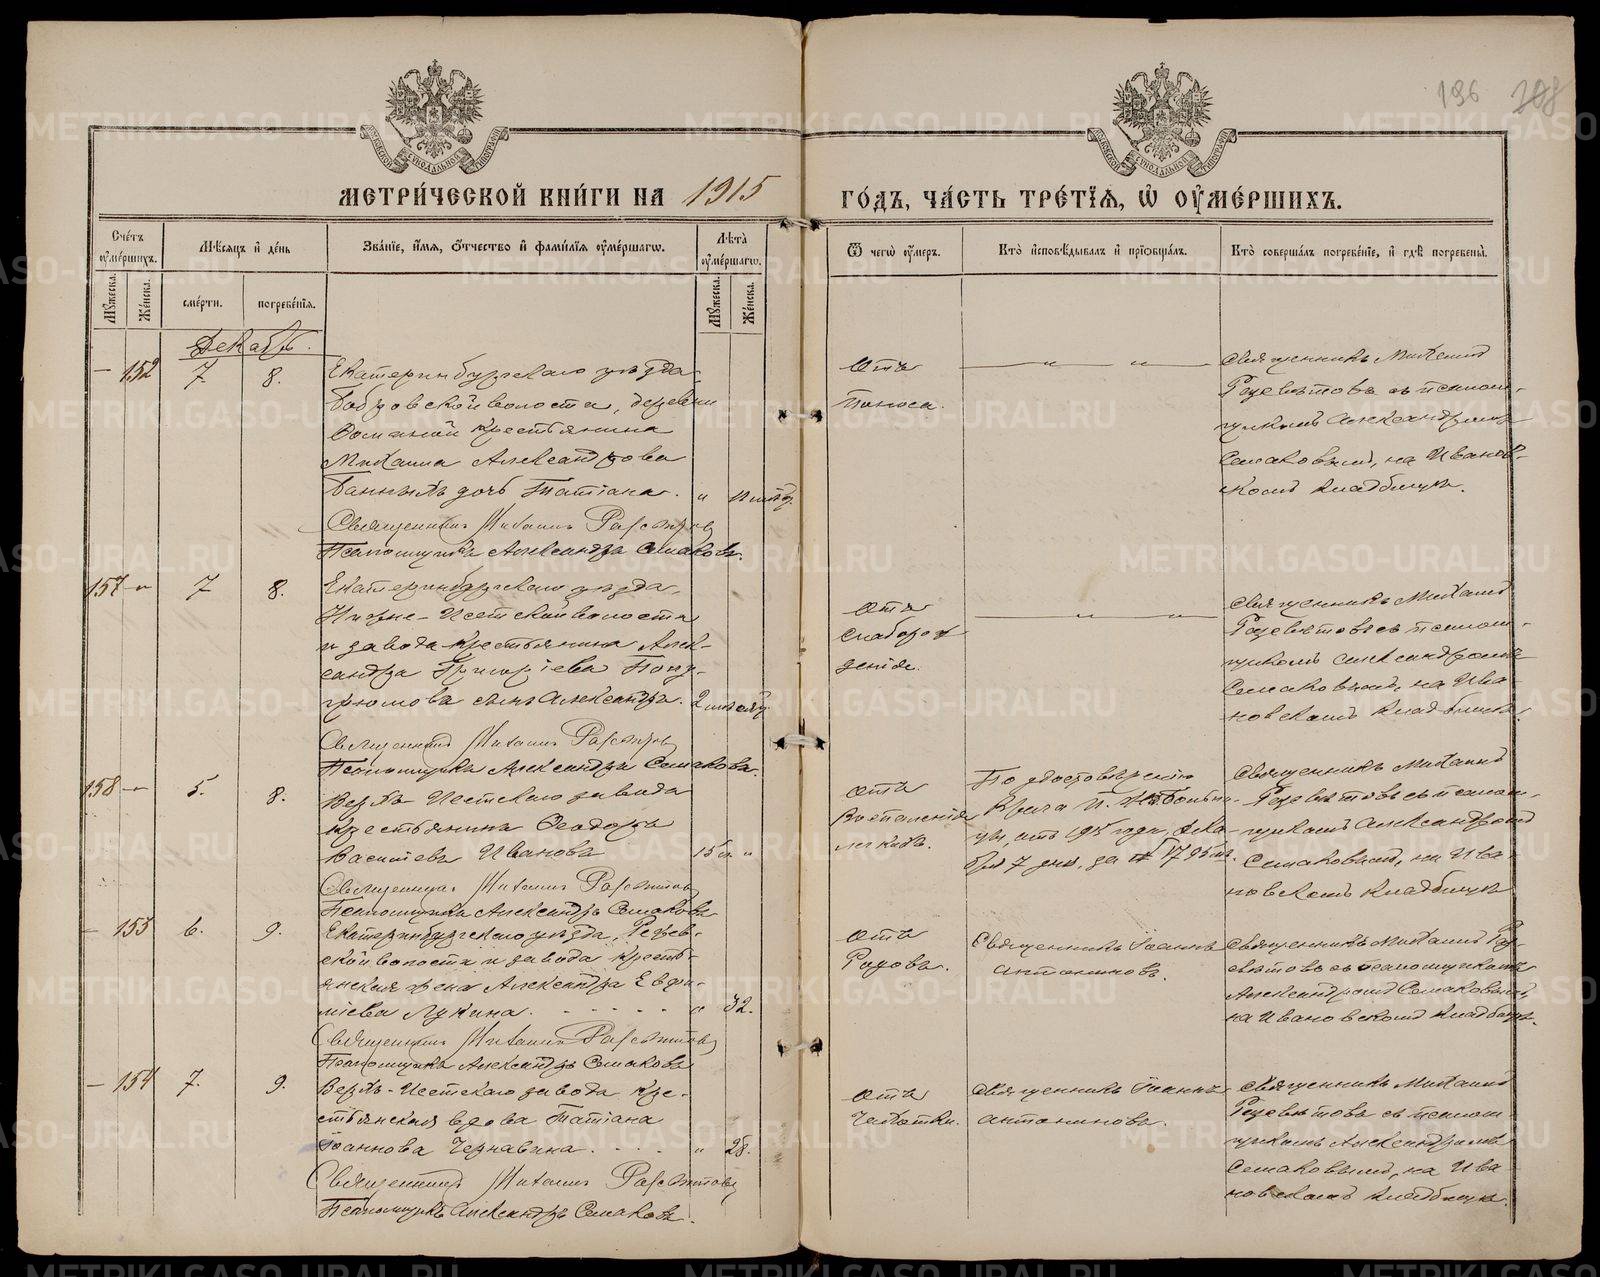 196 208
МЕТРИ́ЧЕСКОЙ КНИ́ГИ НА 1915 ГО́ДЪ, ЧА́СТЬ ТРЕ́ТЇѦ, Ѡ ОУМЕ́РШИХЪ.
Сче́тъ оумершихъ.
Мѣсяцъ и день
Зва́нїе, и́мѧ, о́тчество и фами́лїѧ оуме́ршагѡ.
Лѣта оуме́ршагѡ.
Ѿ чегѡ̀ оу́меръ.
Кто̀ исповѣ́дывалъ и прїобща́лъ.
Кто̀ соверша́лъ погребе́нїе, и гдѣ̀ погребены̀.
Мꙋ́жеска.
Же́нска.
сме́рти.
погребе́нїѧ.
Мꙋ́жеска.
Же́нска.
Декабрь.
— 152 7 8.
Екатеринбургскаго уѣзда
Бобровской волости, деревни
крестьянина
Михаила Александрова
Банныхъ дочь Татіана. "
Священникъ Михаилъ
Псаломщикъ Александръ Семаковъ.
Отъ
Поноса.
— " — " —
Священникъ Михаилъ
съ псалом-
щикомъ Александромъ
Семаковымъ, на Иванов-
скомъ кладбищѣ.
157 — 7 8.
Екатеринбургскаго уѣзда,
Нижне-Исетской волости
и завода крестьянина Алек-
сандра Григоріева
сынъ Александръ. 2
Священникъ Михаилъ
Псаломщикъ Александръ Семаковъ.
Отъ
слаборож
денія.
— " — " —
Священникъ Михаилъ
съ псалом-
щикомъ Александромъ
Семаковымъ, на Ива-
новскомъ кладбищѣ.
158 — 5. 8.
Верхъ-Исетскаго завода
крестьянинъ Ѳеодоръ
Васильевъ Ивановъ 15 "
Священникъ Михаилъ
Псаломщикъ Александръ Семаковъ
Отъ
Воспаленія
легкихъ.
По удостовѣренію
Врача
отъ 1915 года, дека-
бря 7 дня, за №
Священникъ Михаилъ
съ псалом-
щикомъ Александромъ
Семаковымъ, на Ива-
новскомъ кладбищѣ
— 153 6. 9.
Екатеринбургскаго уѣзда, Режев-
ской волости и завода крестъ-
янская жена Александра Евфи-
міева Лукина. " 32.
Священникъ Михаилъ
Псаломщикъ Александръ Семаковъ
Отъ
Родовъ.
Священникъ Іоаннъ
Антониновъ.
Священникъ Михаилъ
съ псаломщикомъ
Александромъ Семаковымъ,
на Ивановскомъ кладбищѣ.
— 154 7. 9.
Верхъ-Исетскаго завода кре-
стьянская вдова Татіана
Іоаннова Чернавина. " 28.
Священникъ Михаилъ
Псаломщикъ Александръ Семаковъ.
Отъ
Чахотки.
Священникъ Іоаннъ
Антониновъ.
Священникъ Михаилъ
съ псалом-
щикомъ Александромъ
Семаковымъ, на Ива-
новскомъ кладбищѣ.
METRIKI.GASO-URAL.RU